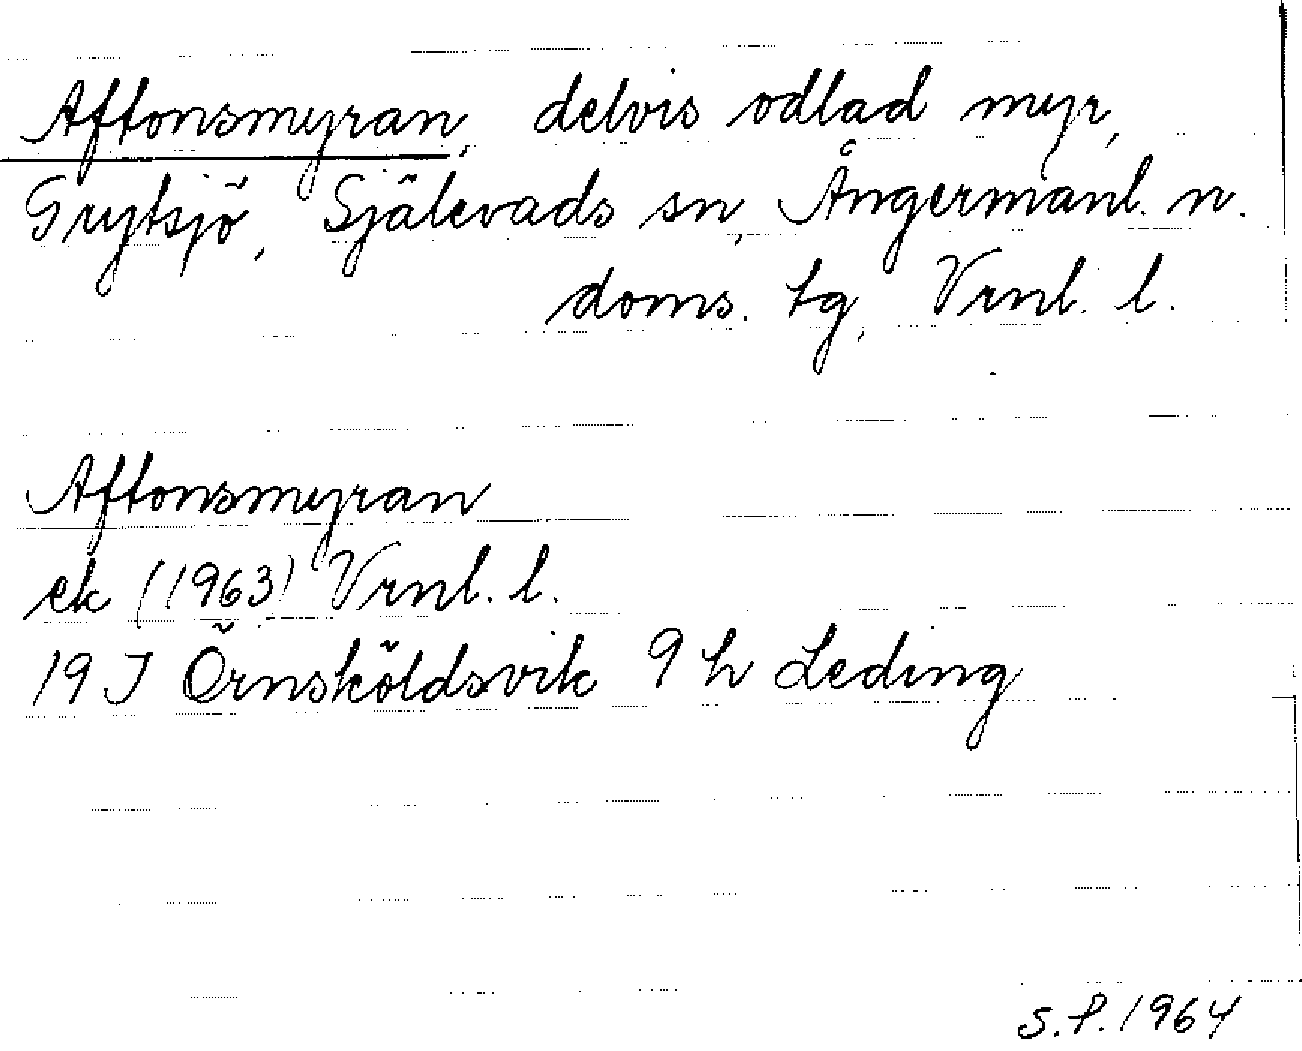 Aftonsmyran, delvis odlad myr,
Grytsjö, Själevads sn, Ångermanl. n.
doms. tg, Vrnl. l.
Aftonsmyran
ek (1963) Vrnl. l.
19 J Örnsköldsvik 9 h Leding
S.P. 1964